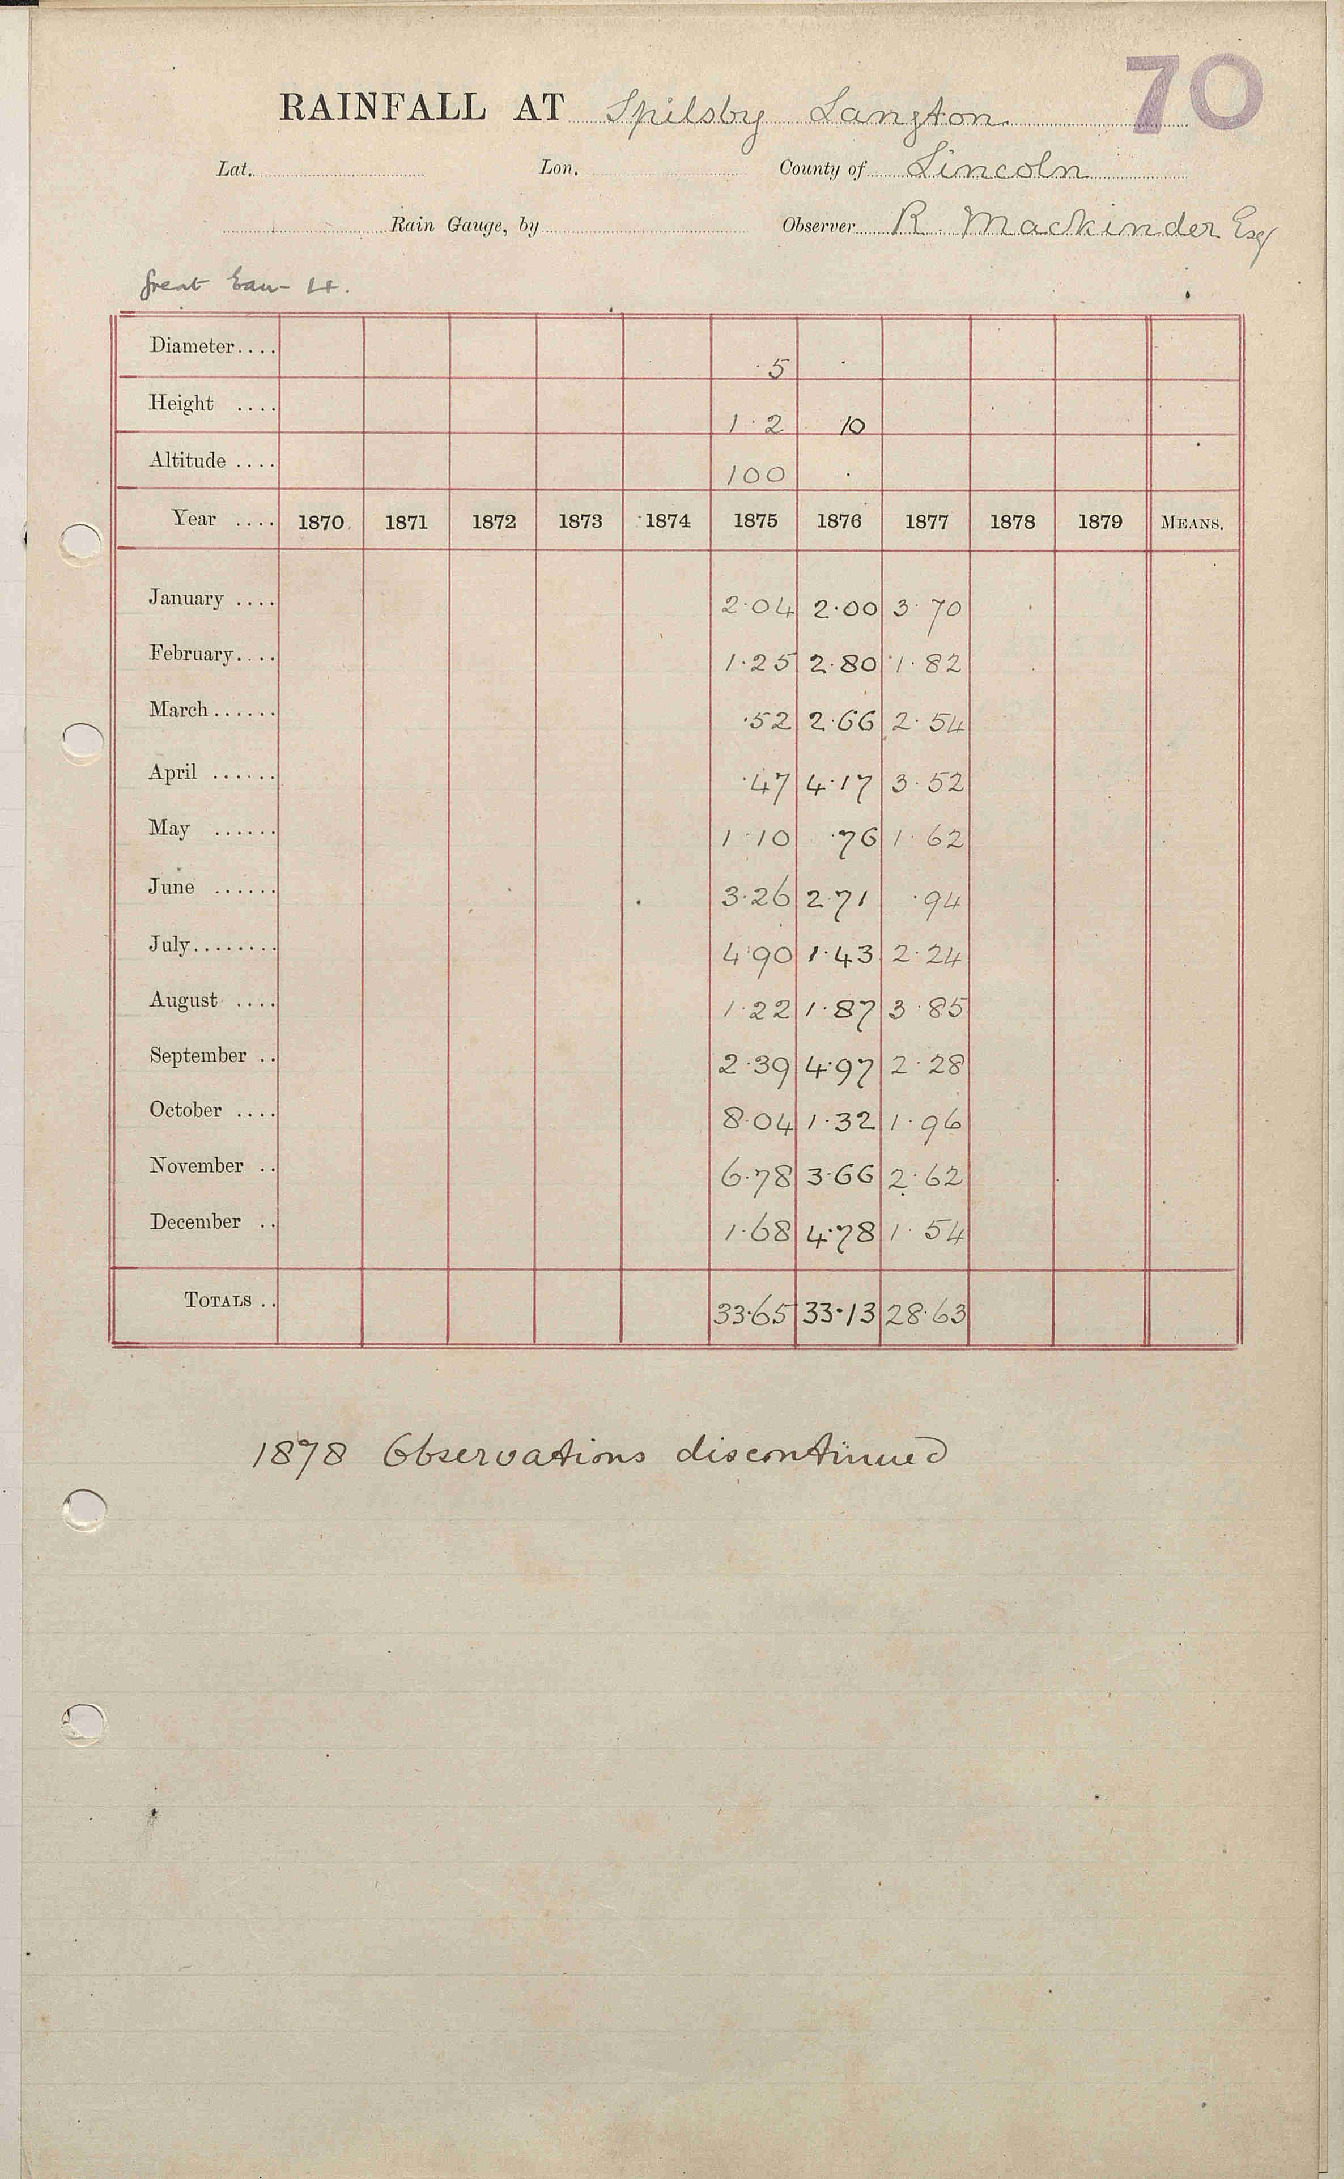 70
RAINFALL AT Spilsby Langton
Lat. Lon. County of Lincoln
Rain Gauge, by Observer R. Mackinder Esq
Great Eau 4.
Diameter.... 5
Height .... 1 · 2 10
Altitude .... 100
Year .... 1870 1871 1872 1873 1874 1875 1876 1877 1878 1879 MEANS.
January .... 2·04 2·00 3·70
February.... 1·25 2·80 1·82
March...... ·52 2·66 2·54
April ...... ·47 4·17 3·52
May ...... 1·10 ·76 1·62
June ...... 3·26 2·71 ·94
July........ 4·90 1·43 2·24
August .... 1·22 1·87 3·85
September .. 2·39 4·97 2·28
October .... 8·04 1·32 1·96
November .. 6·78 3·66 2·62
December .. 1·68 4·78 1·54
TOTALS .. 33·65 33·13 28·63
1878 Observations discontinued